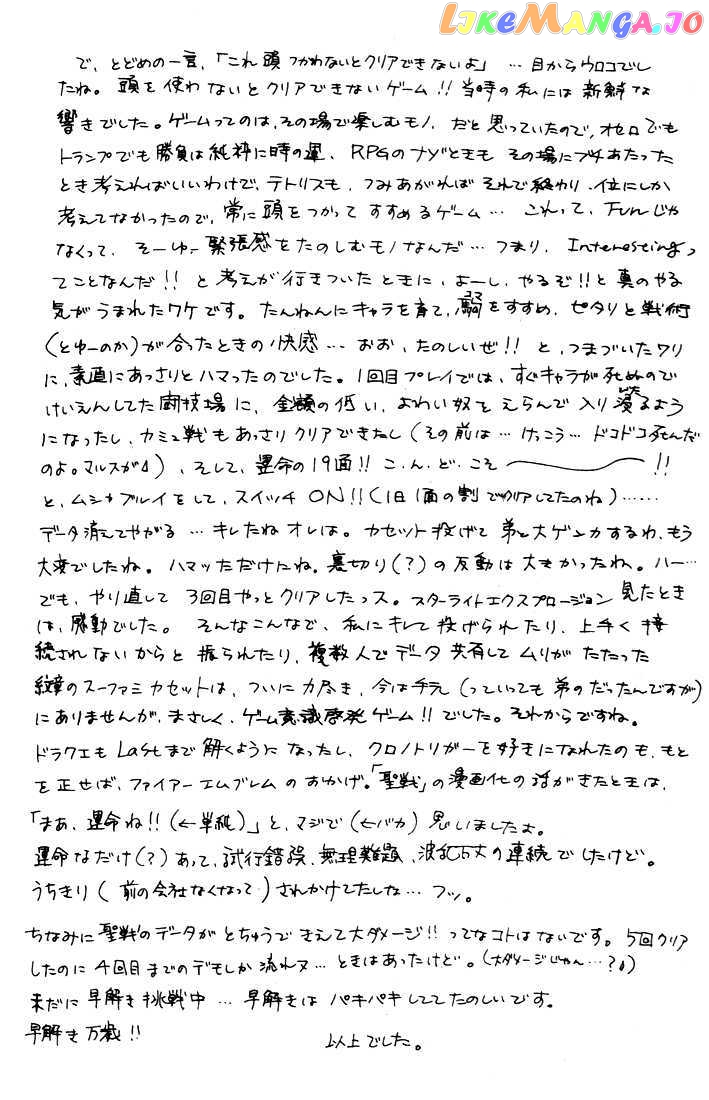 LIKEMANGA.IO
で、とどめの一言、「これ頭つかわないとクリアできないよ」…目からウロコでし
たね。頭を使わないとクリアできないゲーム!!当時の私には新鮮な
響きでした。ゲームってのは、その場で楽しむモノ、だと思っていたので、オセロでも
トランプでも勝負は紙枠に時の運、RPGのナゾときも その場にブチあたった
とき考えればいいわけで、テトリスも、つみあがればそれで終わり、位にしか
考えてなかったので、常に頭をつかってすすめるゲーム…これって、Funじゃ
なくって、そーゆー緊張感をたのしむモノなんだ…つまり、Interestingっ
てことなんだ!!と考えが行きついたときに、よーし、やるぞ!!と真のやる
気がうまれたワケです。たんねんにキャラを育て、駒をすすめ、ピタリと戦術
(とゆーのか)が合ったときの快感…おお、たのしいぜ!!と、つまづいたワリ
に、素直にあっさりとハマったのでした。1回目プレイでは、すぐキャラが死ぬので
けいえんしてた闘技場に、金額の低い、よわい奴をえらんで入り浸るよう
になったし、カミュ戦もあっさりクリアできたし(その前は…けっこう…ドコドコ死んだ
のよ。マルスが)、そして、運命の19面!!こ.ん.ど.こそ〜!!
と、ムシャブルイをして、スイッチON!!(1日1面の割でクリアしてたのね)……
データ消えてやがる…キレたねオレは。カセット投げて弟と大ゲンカするわ、もう
大変でしたね。ハマッただけにね。裏切り(?)の反動は大きかったわ。ハー…
でも、やり直して3回目やっとクリアしたっス。スターライトエクスプロージョン見たとき
は、感動でした。そんなこんなで、私にキレて投げられたり、上手く接
続されないからと振られたり、複数人でデータ共有してムリがたたった
紋章のスーファミカセットは、ついに力尽き、今は手元(っていっても弟のだったんですが)
にありませんが、まさしく、ゲーム意識啓発ゲーム!!でした。それからですね。
ドラクエもLastまで解くようになったし、クロノトリガーを好きになれたのも、もと
を正せば、ファイアーエムブレムのおかげ。「聖戦」の漫画化の話がきたときは、
「まあ、運命ね!!(←単純)」と、マジで(←バカ)思いましたよ。
運命なだけ(?)あって、試行錯誤、無理難題、波乱万丈の連続でしたけど。
うちきり(前の会社なくなって)されかけてたしな…フッ。
ちなみに聖戦のデータがとちゅうできえて大ダメージ!!ってなコトはないです。5回クリア
したのに4回目までのデモしか流れヌ…ときはあったけど。(大ダメージじゃん…?)
未だに早解き挑戦中…早解きはパキパキしててたのしいです。
早解き万歳!!
以上でした。